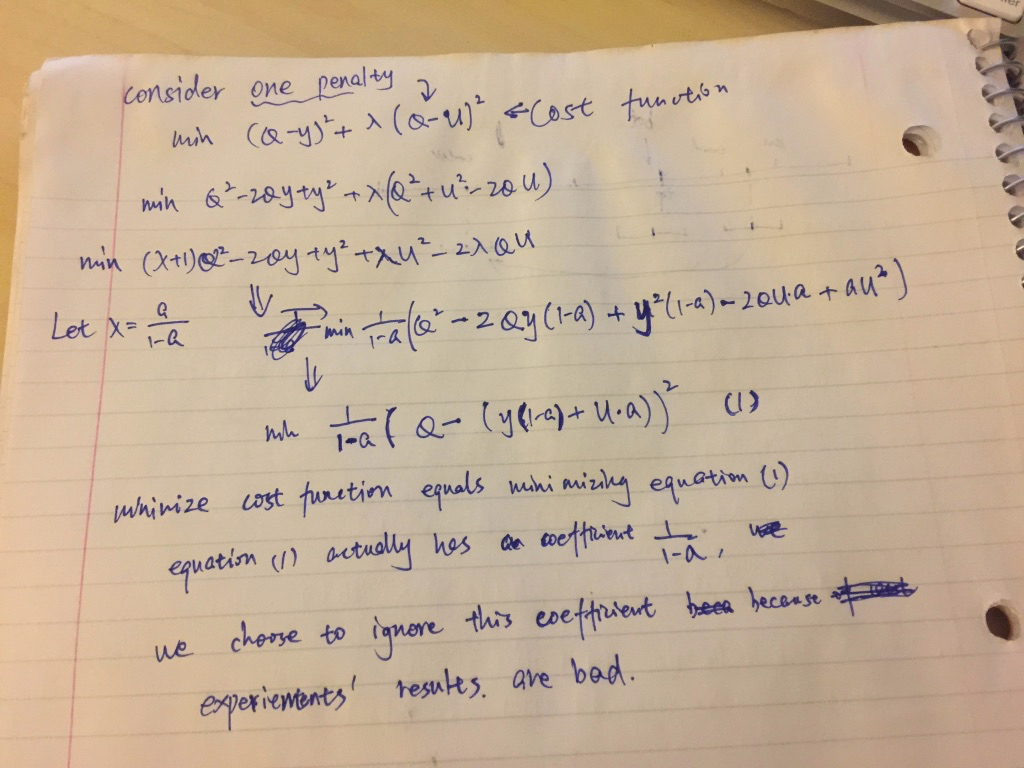 consider one penalty
min (Q-y)² + λ(Q-U)² ← Cost function
min Q²-2Qy+y² + λ(Q²+U²-2QU)
min (λ+1)Q²-2Qy+y²+λU²-2λQU
Let λ = a/(1-a) ⇓ min 1/(1-a) (Q² - 2Qy(1-a) + y²(1-a) - 2QU·a + aU²)
⇓
min 1/(1-a) ( Q - (y(1-a) + U·a))² (1)
minimize cost function equals minimizing equation (1)
equation (1) actually has coefficient 1/(1-a),
we choose to ignore this coefficient because
experiements' results. are bad.